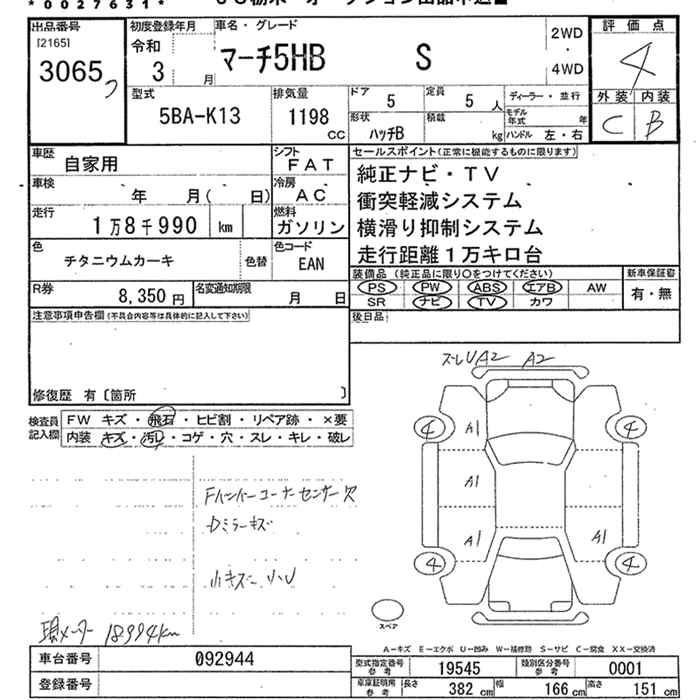 *0027631*
出品番号
[2165]
3065
初度登録年月
令和
3 月
車名・グレード
マーチ5HB S
2WD
・
4WD
評価点
4
外装 内装
C B
型式
5BA-K13
排気量
1198
CC
ドア
5
定員
5 人
ディーラー・並行
モデル年式 年
形状
ハッチB
積載
kg
ハンドル 左・右
車歴
自家用
シフト
FAT
セールスポイント(正常に機能するものに限ります)
純正ナビ・TV
衝突軽減システム
横滑り抑制システム
走行距離1万キロ台
車検
年 月( 日)
冷房
AC
走行
1万8千990 km
燃料
ガソリン
色
チタニウムカーキ
色替
色コード
EAN
装備品 (純正品に限り○をつけてください)
新車保証書
PS PW ABS エアB AW
有・無
SR ナビ TV カワ
R券
8,350 円
名変通知期限
月 日
後日品
注意事項申告欄(不具合内容等は具体的に記入して下さい)
修復歴 有〔箇所 〕
検査員
記入欄
FW キズ・飛石・ヒビ割・リペア跡・×要
内装 キズ・汚レ・コゲ・穴・スレ・キレ・破レ
スレUA2 A2
4 A1 4
A1
A1 A1
4 4
Fバンパーコーナーセンサー欠
Dミラーキズ
小キズ小U
スペア
現メーター 18994km
A-キズ E-エクボ U-凹み W-補修跡 S-サビ C-腐食 XX-交換済
車台番号 092944
登録番号
型式指定番号
参考
19545
類別区分番号
参考
0001
車庫証明用
参考
長さ 382 cm 幅 166 cm 高さ 151 cm